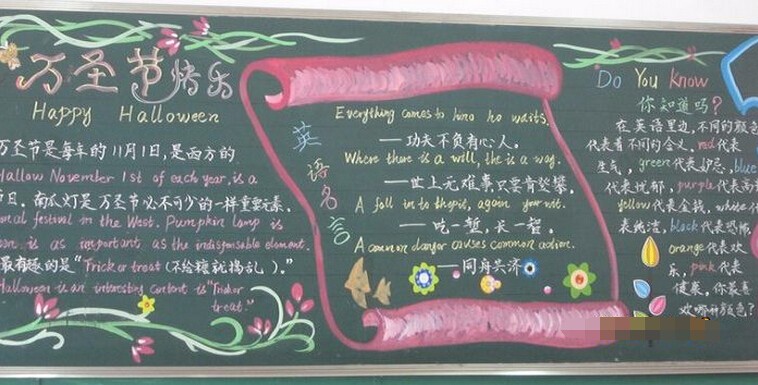 万圣节快乐
Happy Halloween
万圣节是每年的11月1日,是西方的
Hallow November 1st of each year, is a
节日。南瓜灯是万圣节必不可少的一样重要元素,
onal festival in the West. Pumpkin lamp is
as important as the indispensable element.
最有趣的是"Trick or treat(不给糖就捣乱)."
Halloween is an interesting content is "Trick or
treat."
英语名言
Everything comes to him ho waits.
——功夫不负有心人。
Where there is a will, the is a way.
——世上无难事只要肯登攀.
A fall into the pit, a gain your wit.
——吃一堑,长一智。
A common danger causes common action.
——同舟共济
Do You Know
你知道吗?
在英语里边,不同的颜色
代表着不同的含义, red代表
生气, green代表妒忌, blue
代表忧郁, purple代表高
yellow代表金钱, white代
表纯洁, black代表恐怖,
orange代表欢
乐, pink代表
健康, 你最喜
欢哪种颜色?